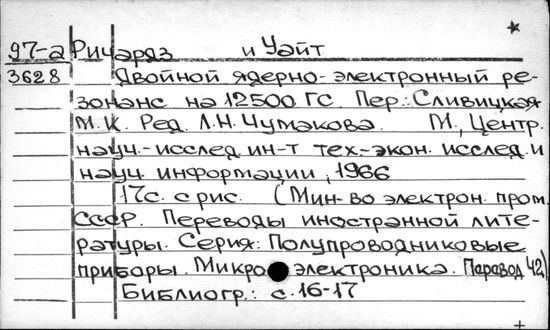 97-а Ричардз и Уайт
3628 Двойной ядерно-электронный ре-
зонанс на 12500 ГС. Пер.: Сливицкая
М.К. Ред. Л.Н. Чумакова. М., Центр.
науч.-исслед. ин-т тех.-экон. исслед. и
науч. информации, 1966
17с. с рис. (Мин-во электрон. пром.
СССР. Переводы иностранной лите-
ратуры. Серия: Полупроводниковые
приборы. Микроэлектроника. Перевод 42)
Библиогр.: с. 16-17